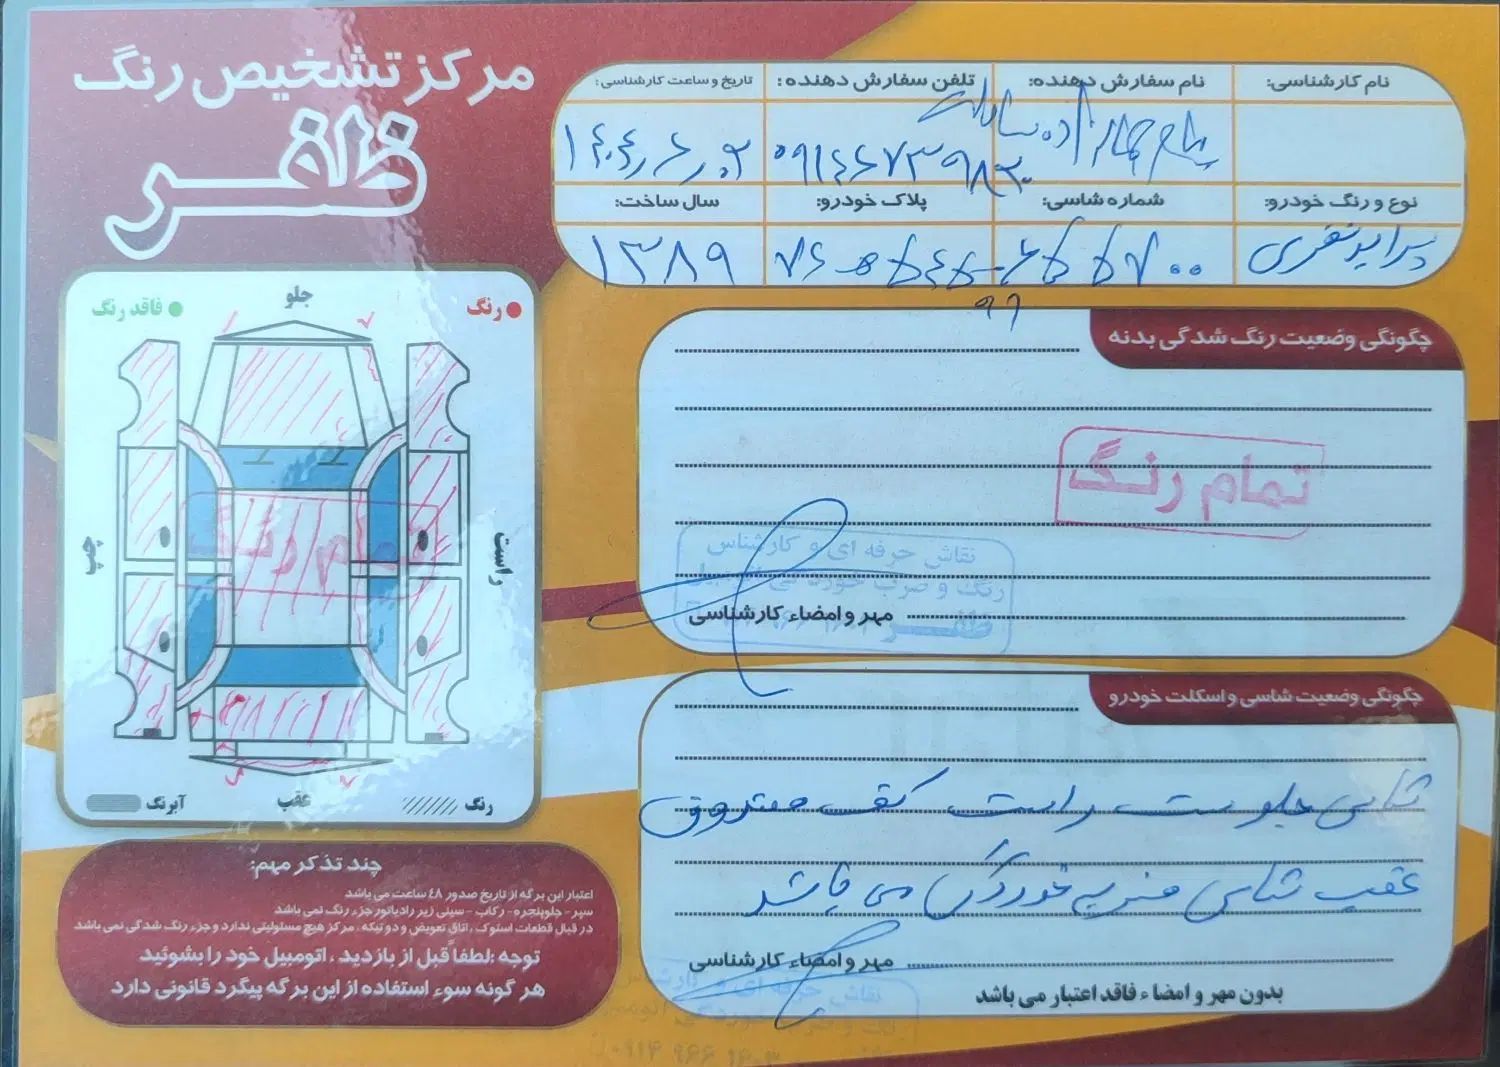 مرکز تشخیص رنگ
ظفر
نام کارشناسی:
نام سفارش دهنده:
تلفن سفارش دهنده:
تاریخ و ساعت کارشناسی:
نوع و رنگ خودرو:
شماره شاسی:
پلاک خودرو:
سال ساخت:
پراید نقره‌ی
۱۳۸۹
رنگ
فاقد رنگ
جلو
راست
چپ
عقب
تمام رنگ
رنگ
آبرنگ
چگونگی وضعیت رنگ شدگی بدنه
تمام رنگ
نقاش حرفه ای و کارشناس
مهر و امضاء کارشناسی
ظفر
چگونگی وضعیت شاسی و اسکلت خودرو
شاسی جلو سمت راست کف صندوق
عقب شاسی ضربه خوردگی می باشد
مهر و امضاء کارشناسی
بدون مهر و امضاء فاقد اعتبار می باشد
چند تذکر مهم:
اعتبار این برگه از تاریخ صدور ۴۸ ساعت می باشد
سپر - جلوپنجره - رکاب - سینی زیر رادیاتور جزء رنگ نمی باشد
در قبال قطعات استوک، اتاق تعویض و دو تیکه، مرکز هیچ مسئولیتی ندارد و جزء رنگ شدگی نمی باشد
توجه :لطفاً قبل از بازدید ، اتومبیل خود را بشوئید
هر گونه سوء استفاده از این برگه پیگرد قانونی دارد